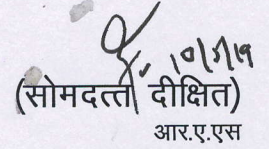 10/5/19
(सोमदत्त दीक्षित)
आर.ए.एस